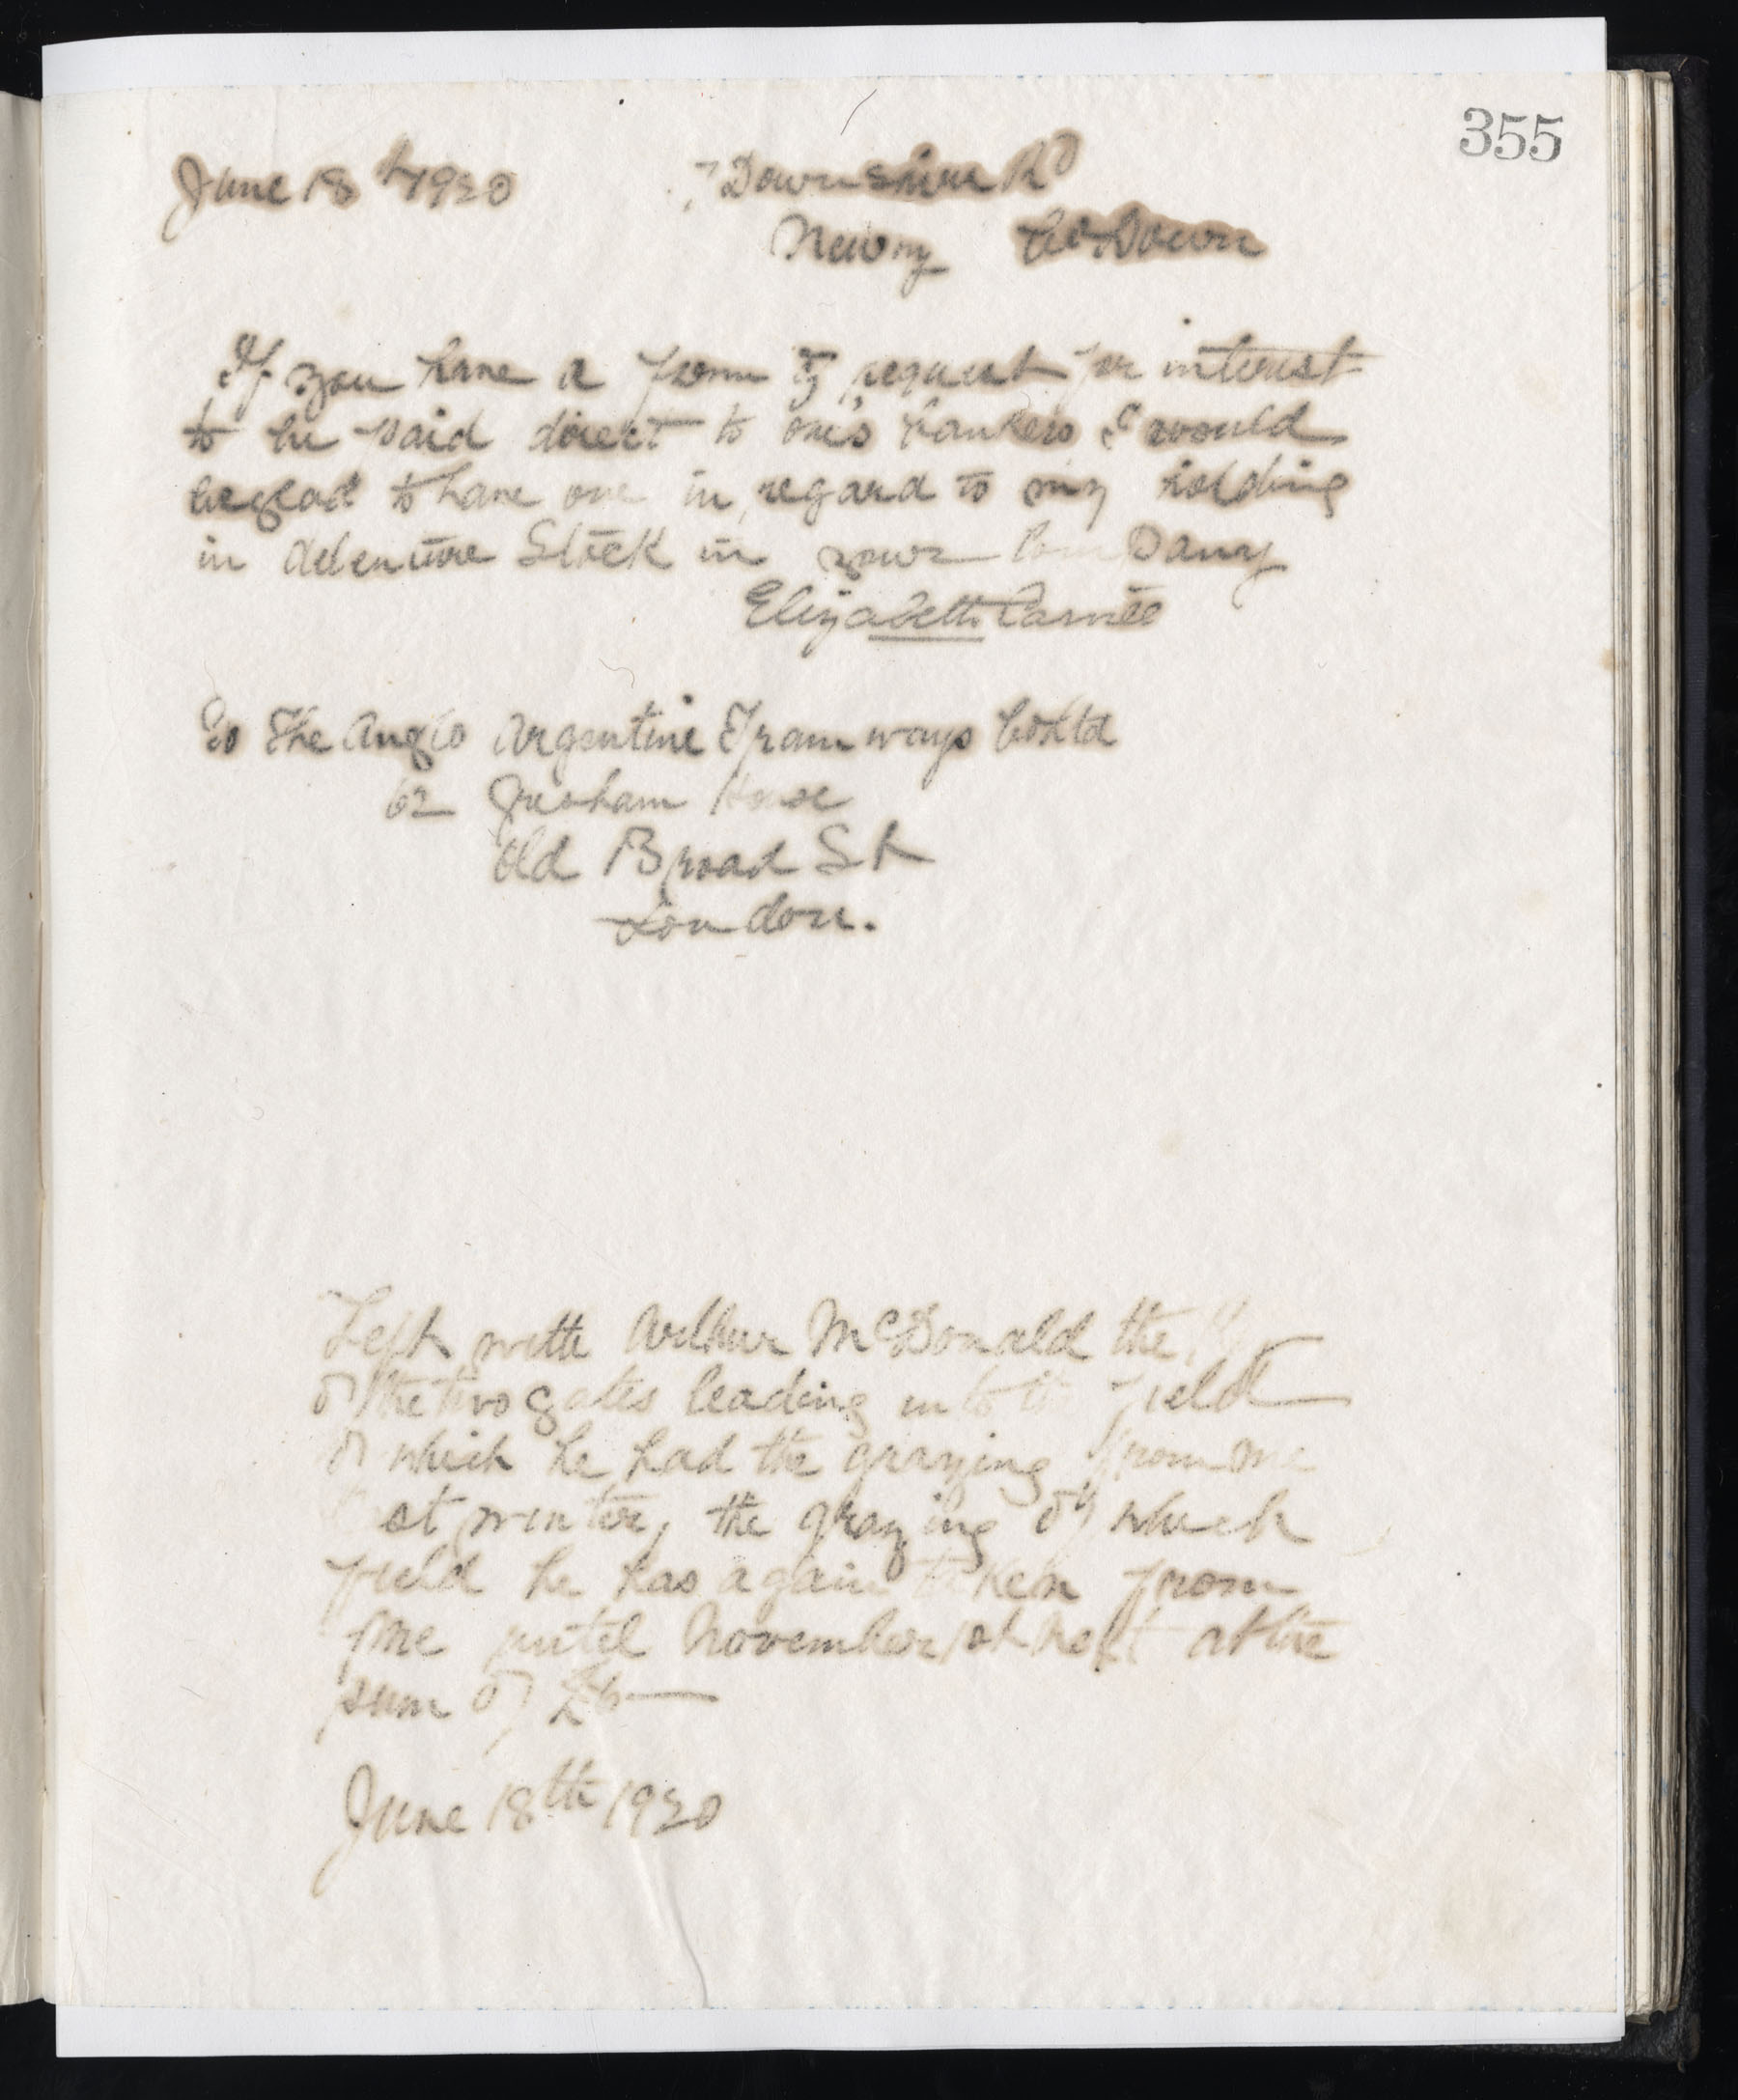 355
June 18th 1920 7 Downshire Rd
Newry Co Down
If you have a form of request for interest
to be paid direct to one's bankers I would
be glad to have one in regard to my holding
in debenture Stock in your Company
Elizabeth
To The Anglo Argentine Tramways Co Ltd
62 Gresham House
Old Broad St
London.
Left with Arthur McDonald the
of the two gates leading into the field
of which he had the grazing from me
last winter, the grazing of which
field he has again taken from
me until November 1st next at the
sum of
June 18th 1920